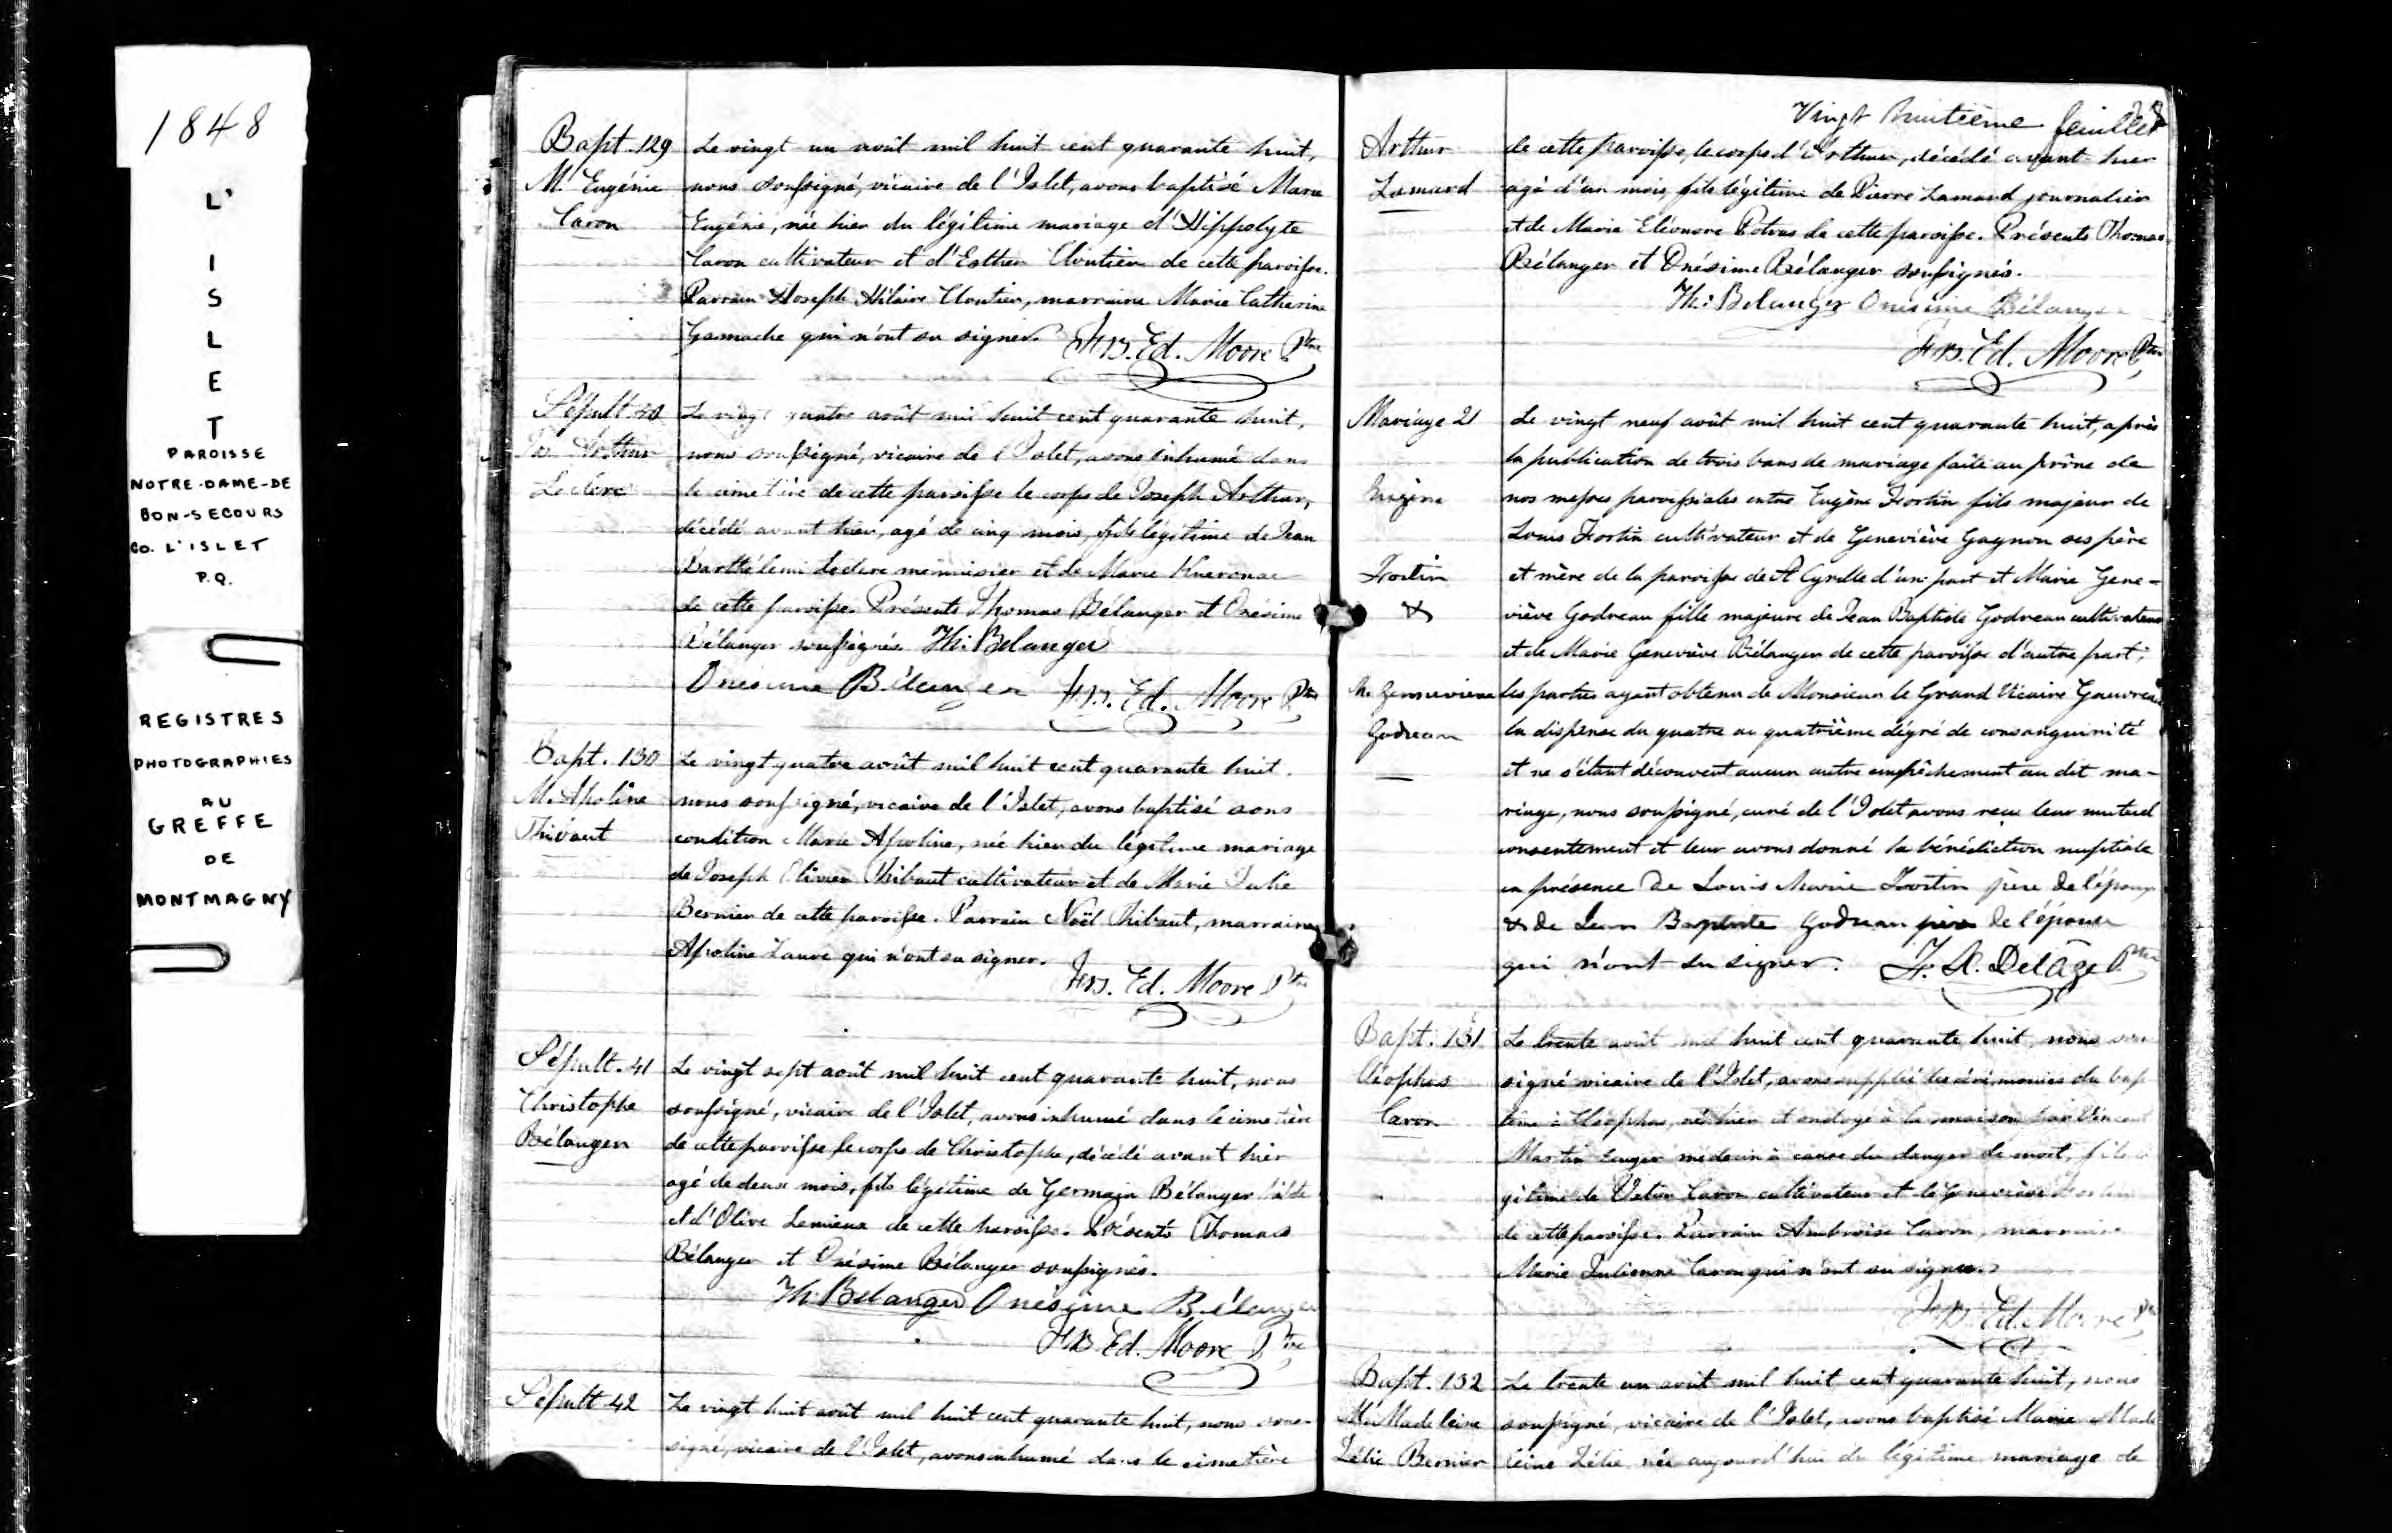 1848
L'
I
S
L
E
T
PAROISSE
NOTRE-DAME-DE
BON-SECOURS
CO. L'ISLET
P.Q.
REGISTRES
PHOTOGRAPHIES
AU
GREFFE
DE
MONTMAGNY
Bapt. 129
M. Eugénie
Caron
Le vingt un août mil huit cent quarante huit,
nous soussigné, vicaire de l'Islet, avons baptisé Marie
Eugénie, née hier du légitime mariage d'Hippolyte
Caron cultivateur et d'Esther Cloutier de cette paroisse.
Parrain Joseph Hilaire Cloutier, marraine Marie Catherine
Gamache qui n'ont su signer. Frs. Ed. Moore Ptre
Sépult. 40
Jos. Arthur
Leclerc
Le vingt quatre août mil huit cent quarante huit,
nous soussigné, vicaire de l'Islet, avons inhumé dans
le cimetière de cette paroisse le corps de Joseph Arthur,
décédé avant hier, agé de cinq mois, fils légitime de Jean
Barthélemi Leclerc menuisier et de Marie
de cette paroisse. Présents Thomas Bélanger et Onésime
Bélanger soussignés. Th: Belanger
Onesime Bélanger Frs. Ed. Moore Ptre
Bapt. 130
M. Apoline
Thibaut
Le vingt quatre août mil huit cent quarante huit.
nous soussigné, vicaire de l'Islet, avons baptisé sous
condition Marie Apoline, née hier du légitime mariage
de Joseph Olivier Thibaut cultivateur et de Marie Julie
Bernier de cette paroisse. Parrain Noël Thibaut, marraine
Apoline qui n'ont su signer.
Frs. Ed. Moore Ptre
Sépult. 41
Christophe
Bélanger
Le vingt sept août mil huit cent quarante huit, nous
soussigné, vicaire de l'Islet, avons inhumé dans le cimetière
de cette paroisse le corps de Christophe, décédé avant hier
agé de deux mois, fils légitime de Germain Bélanger
et d'Olive Lemieux de cette paroisse. Présents Thomas
Bélanger et Onésime Bélanger soussignés.
Th: Belanger Onésime Bélanger
Frs Ed. Moore Ptre
Sépult 42
Le vingt huit août mil huit cent quarante huit, nous sous-
signé, vicaire de l'Islet, avons inhumé dans le cimetière
Vingt huitième feuillet
28
Arthur
Lamard
de cette paroisse, le corps d'Arthur, décédé avant hier
agé d'un mois, fils légitime de Pierre Lamard journalier
et de Marie Eléonore Potvas de cette paroisse. Présents Thomas
Bélanger et Onésime Bélanger soussignés.
Th: Belanger Onésime Bélanger
Frs. Ed. Moore Ptre
Mariage 21
Eugène
Fortin
&
Me Genevieve
Godreau
Le vingt neuf août mil huit cent quarante huit, après
la publication de trois bans de mariage faite au prône de
nos messes paroissiales entre Eugène Fortin fils majeur de
Louis Fortin cultivateur et de Geneviève Gagnon ses père
et mère de la paroisse de St Cyrille d'une part et Marie Gene-
viève Godreau fille majeure de Jean Baptiste Godreau cultivateur
et de Marie Geneviève Bélanger de cette paroisse d'autre part;
les parties ayant obtenu de Monsieur le Grand Vicaire Gauvreau
la dispense du quatre au quatrième dégré de consanguinité
et ne s'étant découvert aucun autre empêchement au dit ma-
riage, nous soussigné, curé de l'Islet avons reçu leur mutuel
consentement et leur avons donné la bénédiction nuptiale
en présence de Louis Marie Fortin père de l'époux
& de Jean Baptiste Godreau père de l'épouse
qui n'ont su signer. F. X. Delâge Ptre
Bapt. 131
Cléophas
Caron
Le trente août mil huit cent quarante huit, nous sous
signé vicaire de l'Islet, avons supplié les cérémonies du bap
tême à Cléophas, né hier et ondoyé à la maison par Vincent
Martin médecin à cause du danger de mort, fils lé
gitime de Caron cultivateur et de Geneviève Fortin
de cette paroisse. Parrain Ambroise Caron, marraine
Marie Julienne Caron qui n'ont su signer.
Frs. Ed. Moore Ptre
Bapt. 132
Me Madeleine
Zélie Bernier
Le trente un août mil huit cent quarante huit, nous
soussigné, vicaire de l'Islet, avons baptisé Marie Made
leine Zélie née aujourd'hui du légitime mariage de